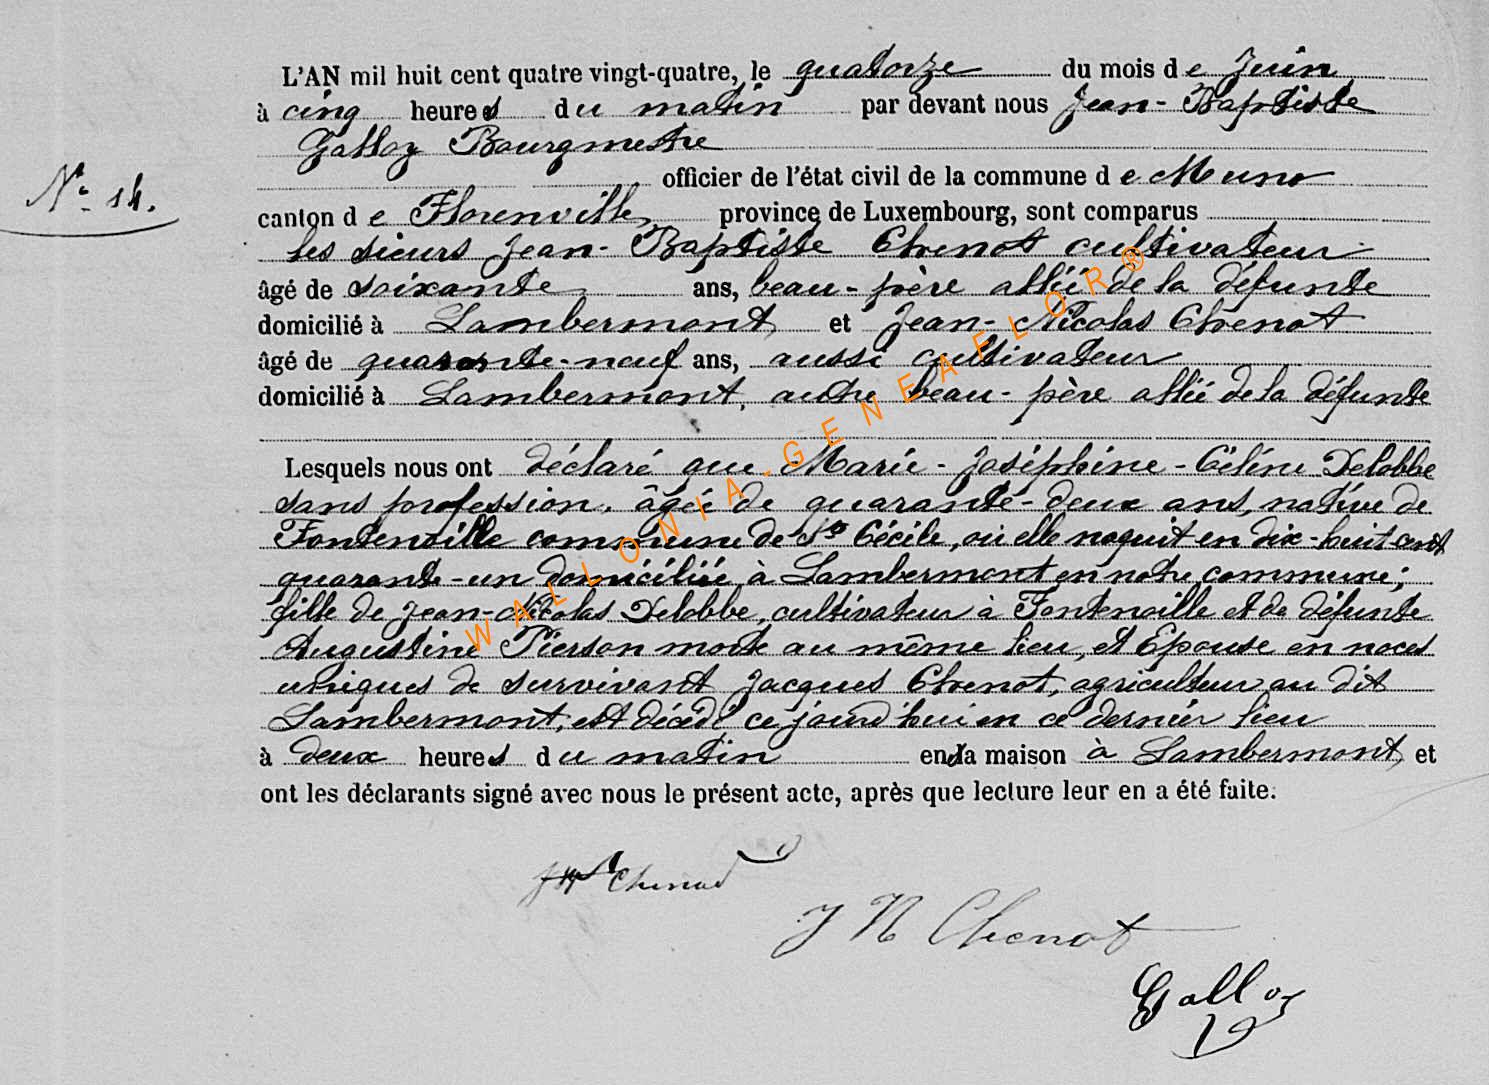 L'AN mil huit cent quatre vingt-quatre, le quatorze du mois de Juin
à cinq heures du matin par devant nous Jean-Baptiste
Galloy Bourgmestre
officier de l'état civil de la commune de Muno
N° 14.
canton de Florenville, province de Luxembourg, sont comparus
les sieurs Jean-Baptiste Chenot cultivateur
âgé de soixante ans, beau-père allié de la défunte
domicilié à Lambermont, et Jean-Nicolas Chenot
âgé de quarante-neuf ans, aussi cultivateur
domicilié à Lambermont, autre beau-père allié de la défunte
Lesquels nous ont déclaré que Marie-Joséphine-Céline Delobbe
sans profession, âgée de quarante-deux ans, native de
Fontenoille commune de Ste Cécile, où elle naquit en dix-huit cent
quarante-un domiciliée, à Lambermont en notre commune;
fille de Jean-Nicolas Delobbe, cultivateur à Fontenoille et de défunte
Augustine Pierson morte au même lieu, et Epouse en noces
uniques de survivant Jacques Chenot, agriculteur au dit
Lambermont, est décédé ce jourd'hui en ce dernier lieu
à deux heures du matin en la maison à Lambermont, et
ont les déclarants signé avec nous le présent acte, après que lecture leur en a été faite.
Chenot
J N Chenot
Galloy
WALLONIA-GENEAFLOR®